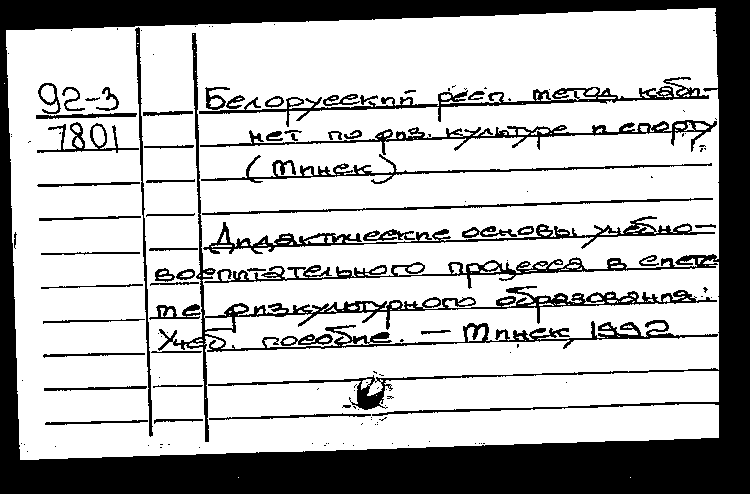 92-3 Белорусский респ. метод. каби-
7801 нет по физ. культуре и спорту
(Минск).
Дидактические основы учебно-
воспитательного процесса в систе
ме физкультурного образования:
Учеб. пособие. — Минск, 1992